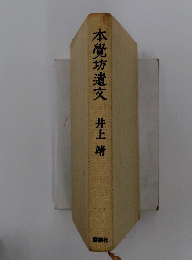 本覺坊遺文
井上靖
講談社